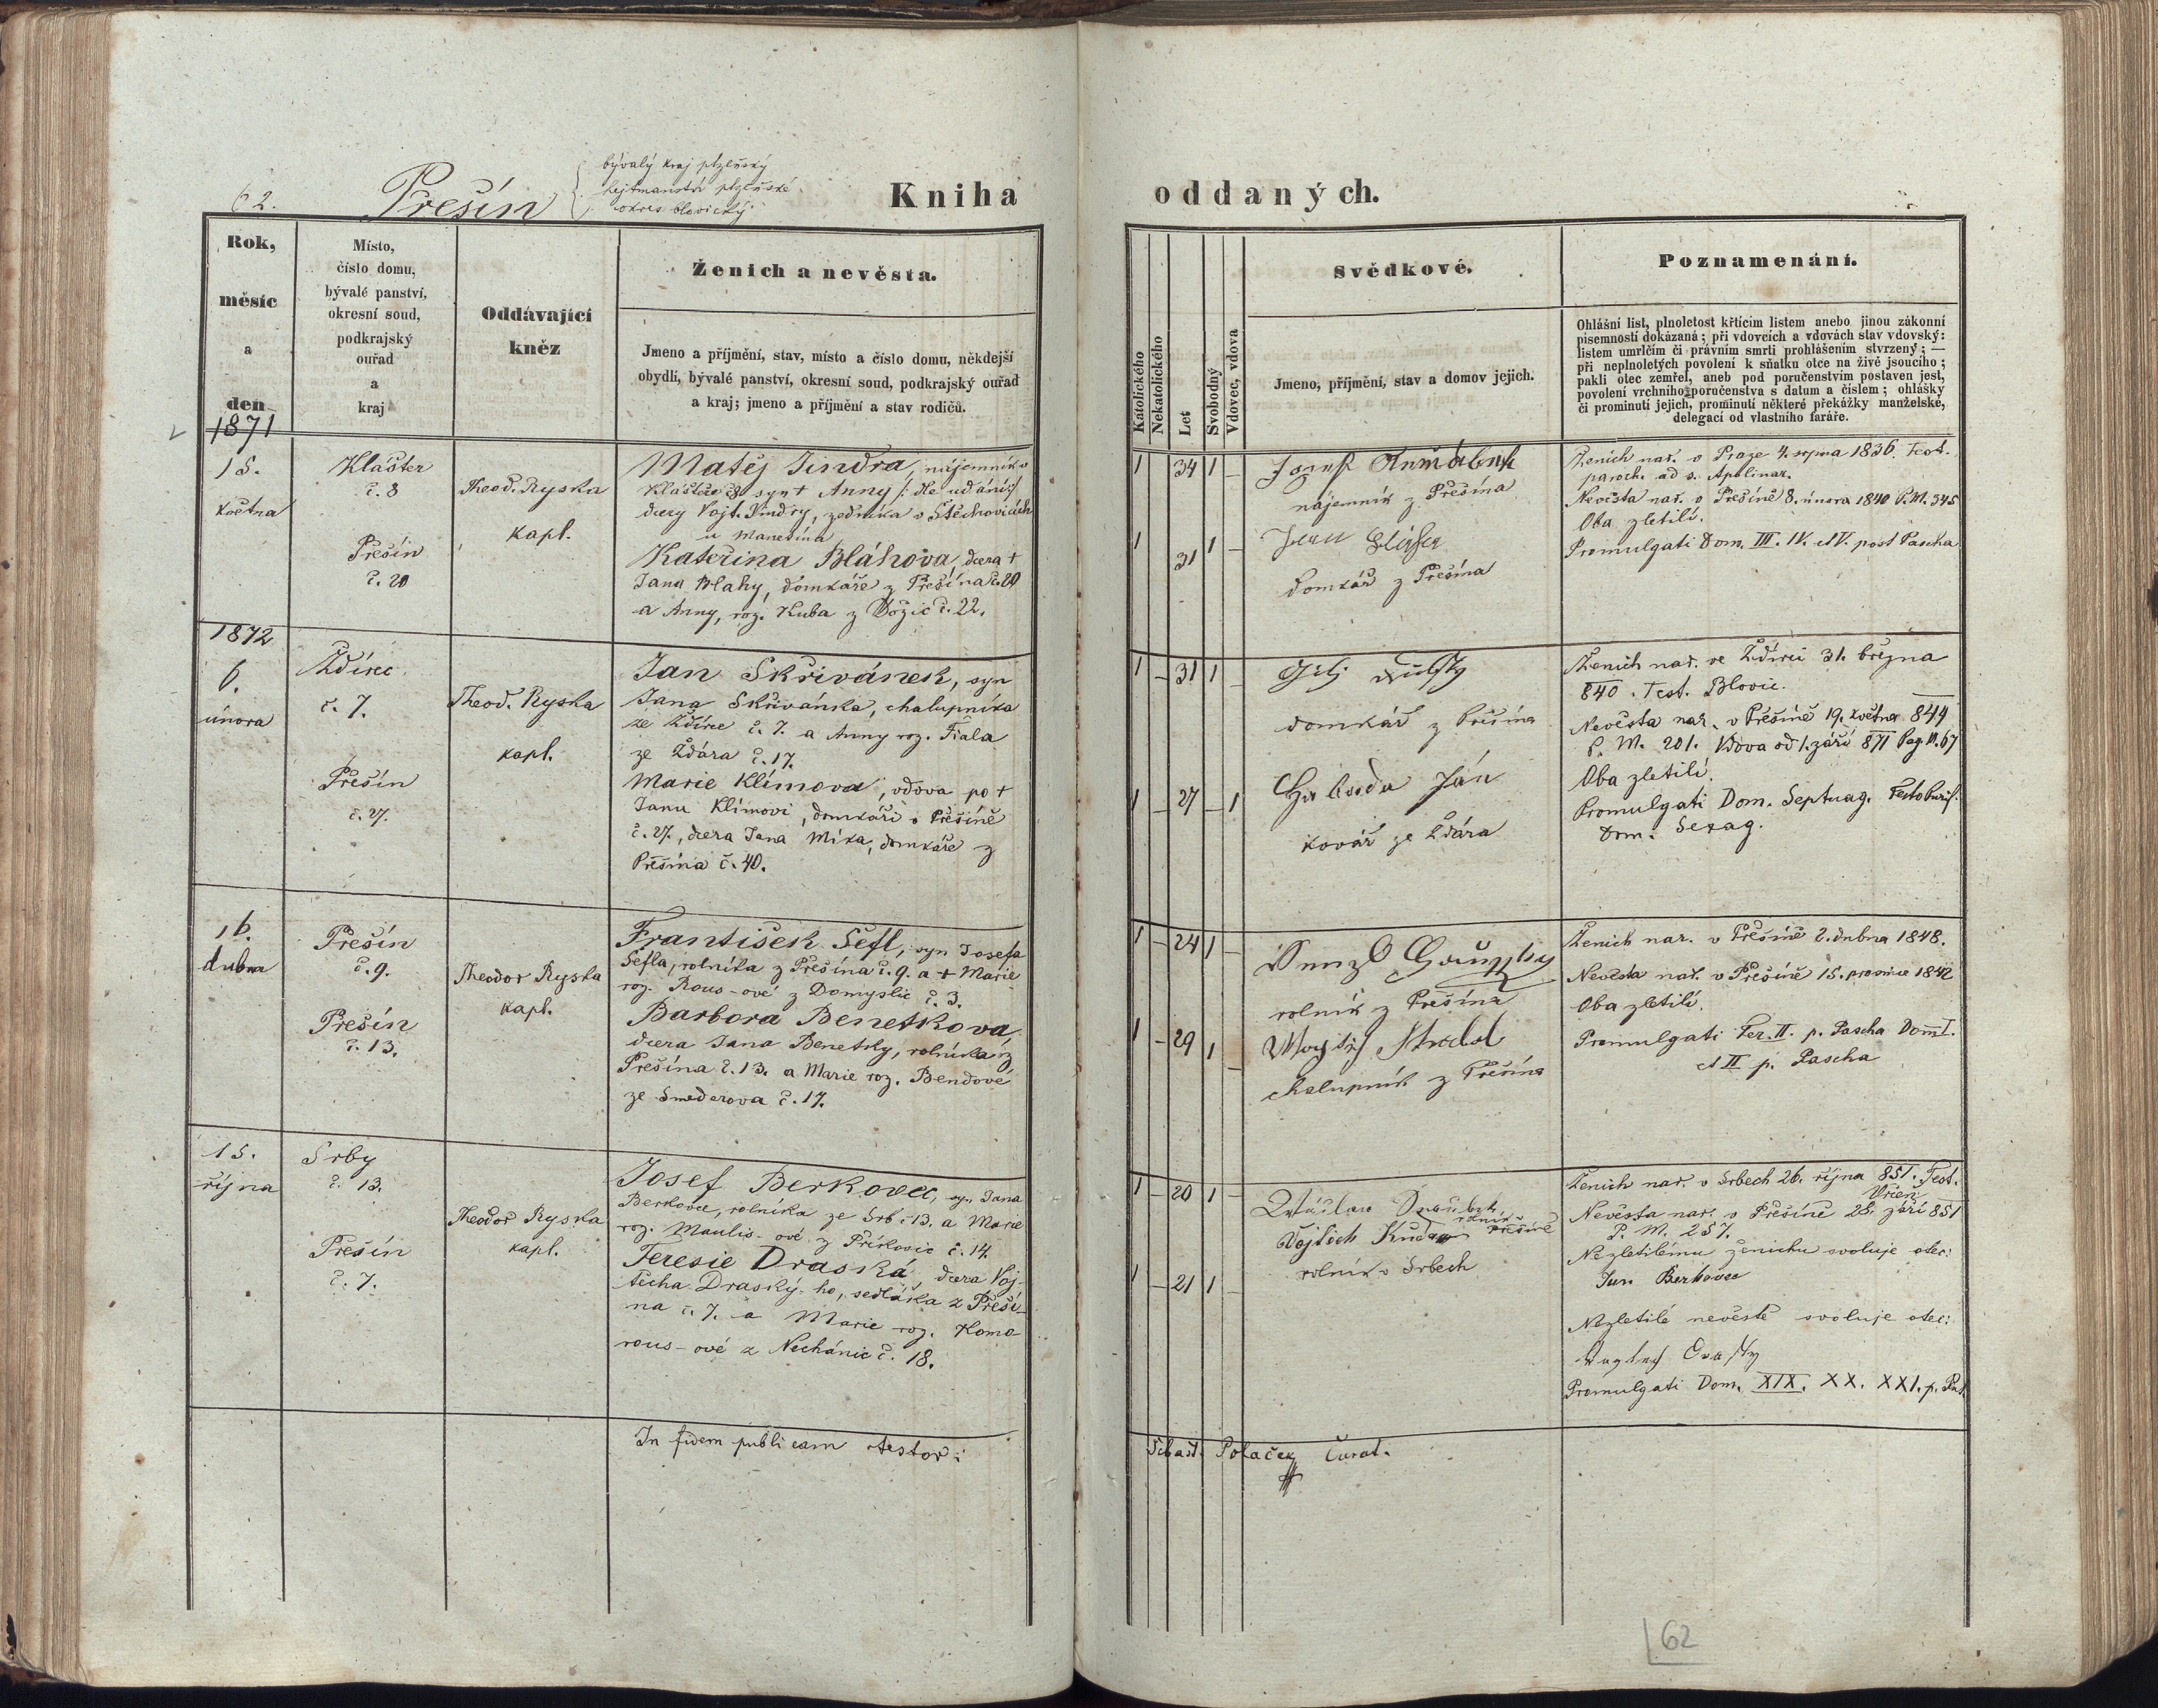 62.
Přešín
bývalý kraj plzeňský
hejtmanství plzeňské
okres blovický.
Kniha oddaných.
Rok,
měsíc
a
den
Místo,
číslo domu,
bývalé panství,
okresní soud,
podkrajský
ouřad
a
kraj
Oddávající
kněz
Ženich a nevěsta.
Jmeno a příjmění, stav, místo a číslo domu, někdejší
obydlí, bývalé panství, okresní soud, podkrajský ouřad
a kraj; jmeno a příjmění a stav rodičů.
Katolického
Nekatolického
Let
Svobodný
Vdovec, vdova
Svědkové.
Jmeno, příjmění, stav a domov jejich.
Poznamenání.
Ohlášní list, plnoletost křtícím listem anebo jinou zákonní
písemností dokázaná; při vdovcích a vdovách stav vdovský:
listem umrlčím či právním smrti prohlášením stvrzený; —
při neplnoletých povolení k sňatku otce na živě jsoucího;
pakli otec zemřel, aneb pod poručenstvím postaven jest,
povolení vrchního poručenstva s datum a číslem; ohlášky
či prominutí jejich, prominutí některé překážky manželské,
delegací od vlastního faráře.
1871
15.
května
Klášter
č. 8
Přešín
č. 20
Theod. Ryska
kapl.
Matěj Jindra, nájemník v
Klášteře č. 8 syn † Anny /: dle udání :/
dcery Vojt. Jindry, zedníka v Štěchovicích
u Manetína
Kateřina Bláhova, dcera †
Jana Bláhy, domkáře z Přešína č. 20
a Anny, roz. Kuba z Božic č. 22.
1 34 1
1 31 1
Josef
nájemník z Přešína
Jan
domkář z Přešína
Ženich nar. v Praze 4. srpna 1836. Test.
paroch. ad s. Apolinar.
Nevěsta nar. v Přešíně 8. února 1840 P. M. 345
Oba zletilí.
Promulgati Dom. III. IV. et V. post Pascha
1872
6.
února
Ždírec
č. 7.
Přešín
č. 27.
Theod. Ryska
kapl.
Jan Skřivánek, syn
Jana Skřivánka, chalupníka
ze Ždírce č. 7. a Anny roz. Fiala
ze Ždára č. 17.
Marie Klímova, vdova po †
Janu Klímovi, domkáři v Přešíně
č. 27., dcera Jana Míka, domkáře z
Přešína č. 40.
1 – 31 1 –
1 – 27 – 1
domkář z Přešína
Ján
kovář ze Ždára
Ženich nar. ve Ždírci 31. března
840. Test. Blovic.
Nevěsta nar. v Přešíně 19. května 844
P. M. 201. Vdova od 1. září 871 Pag. D. 67
Oba zletilí.
Promulgati Dom. Septuag. Festo Purif.
Dom. Sexag.
16.
dubna
Přešín
č. 9.
Přešín
č. 13.
Theodor Ryska
kapl.
František Šefl, syn Josefa
Šefla, rolníka z Přešína č. 9. a † Marie
roz. Rous-ové z Domyslic č. 3.
Barbora Benetkova,
dcera Jana Benetky, rolníka z
Přešína č. 13. a Marie roz. Bendové
ze Smederova č. 17.
1 – 24 1 –
1 – 29 1 –
Wenzl
rolník z Přešína
chalupník z Přešína
Ženich nar. v Přešíně 2. dubna 1848.
Nevěsta nar. v Přešíně 15. prosince 1842
Oba zletilí.
Promulgati Fer. II. p. Pascha Dom I.
et II p. Pascha
15.
října
Srby
č. 13.
Přešín
č. 7.
Theodor Ryska
kapl.
Josef Berkovec, syn Jana
Berkovce, rolníka ze Srb č. 13. a Marie
roz. Maulis-ové z Příkosic č. 14.
Teresie Draská, dcera Voj-
těcha Draský-ho, sedláka z Přeší-
na č. 7. a Marie roz. Komo-
rous-ové z Nechánic č. 18.
1 – 20 1 –
1 – 21 1 –
Václav
rolník v Přešíně
Vojtěch
rolník v Srbech
Ženich nar. v Srbech 26. října 851. Test.
Nevěsta nar. v Přešíně 28. září 851
P. M. 257.
Nezletilému ženichu svoluje otec:
Jan Berkovec
Nezletilé nevěstě svoluje otec:
Promulgati Dom. XIX. XX. XXI. p. Pent.
In fidem publicam testor:
Šebast. Polaček Curat.
62